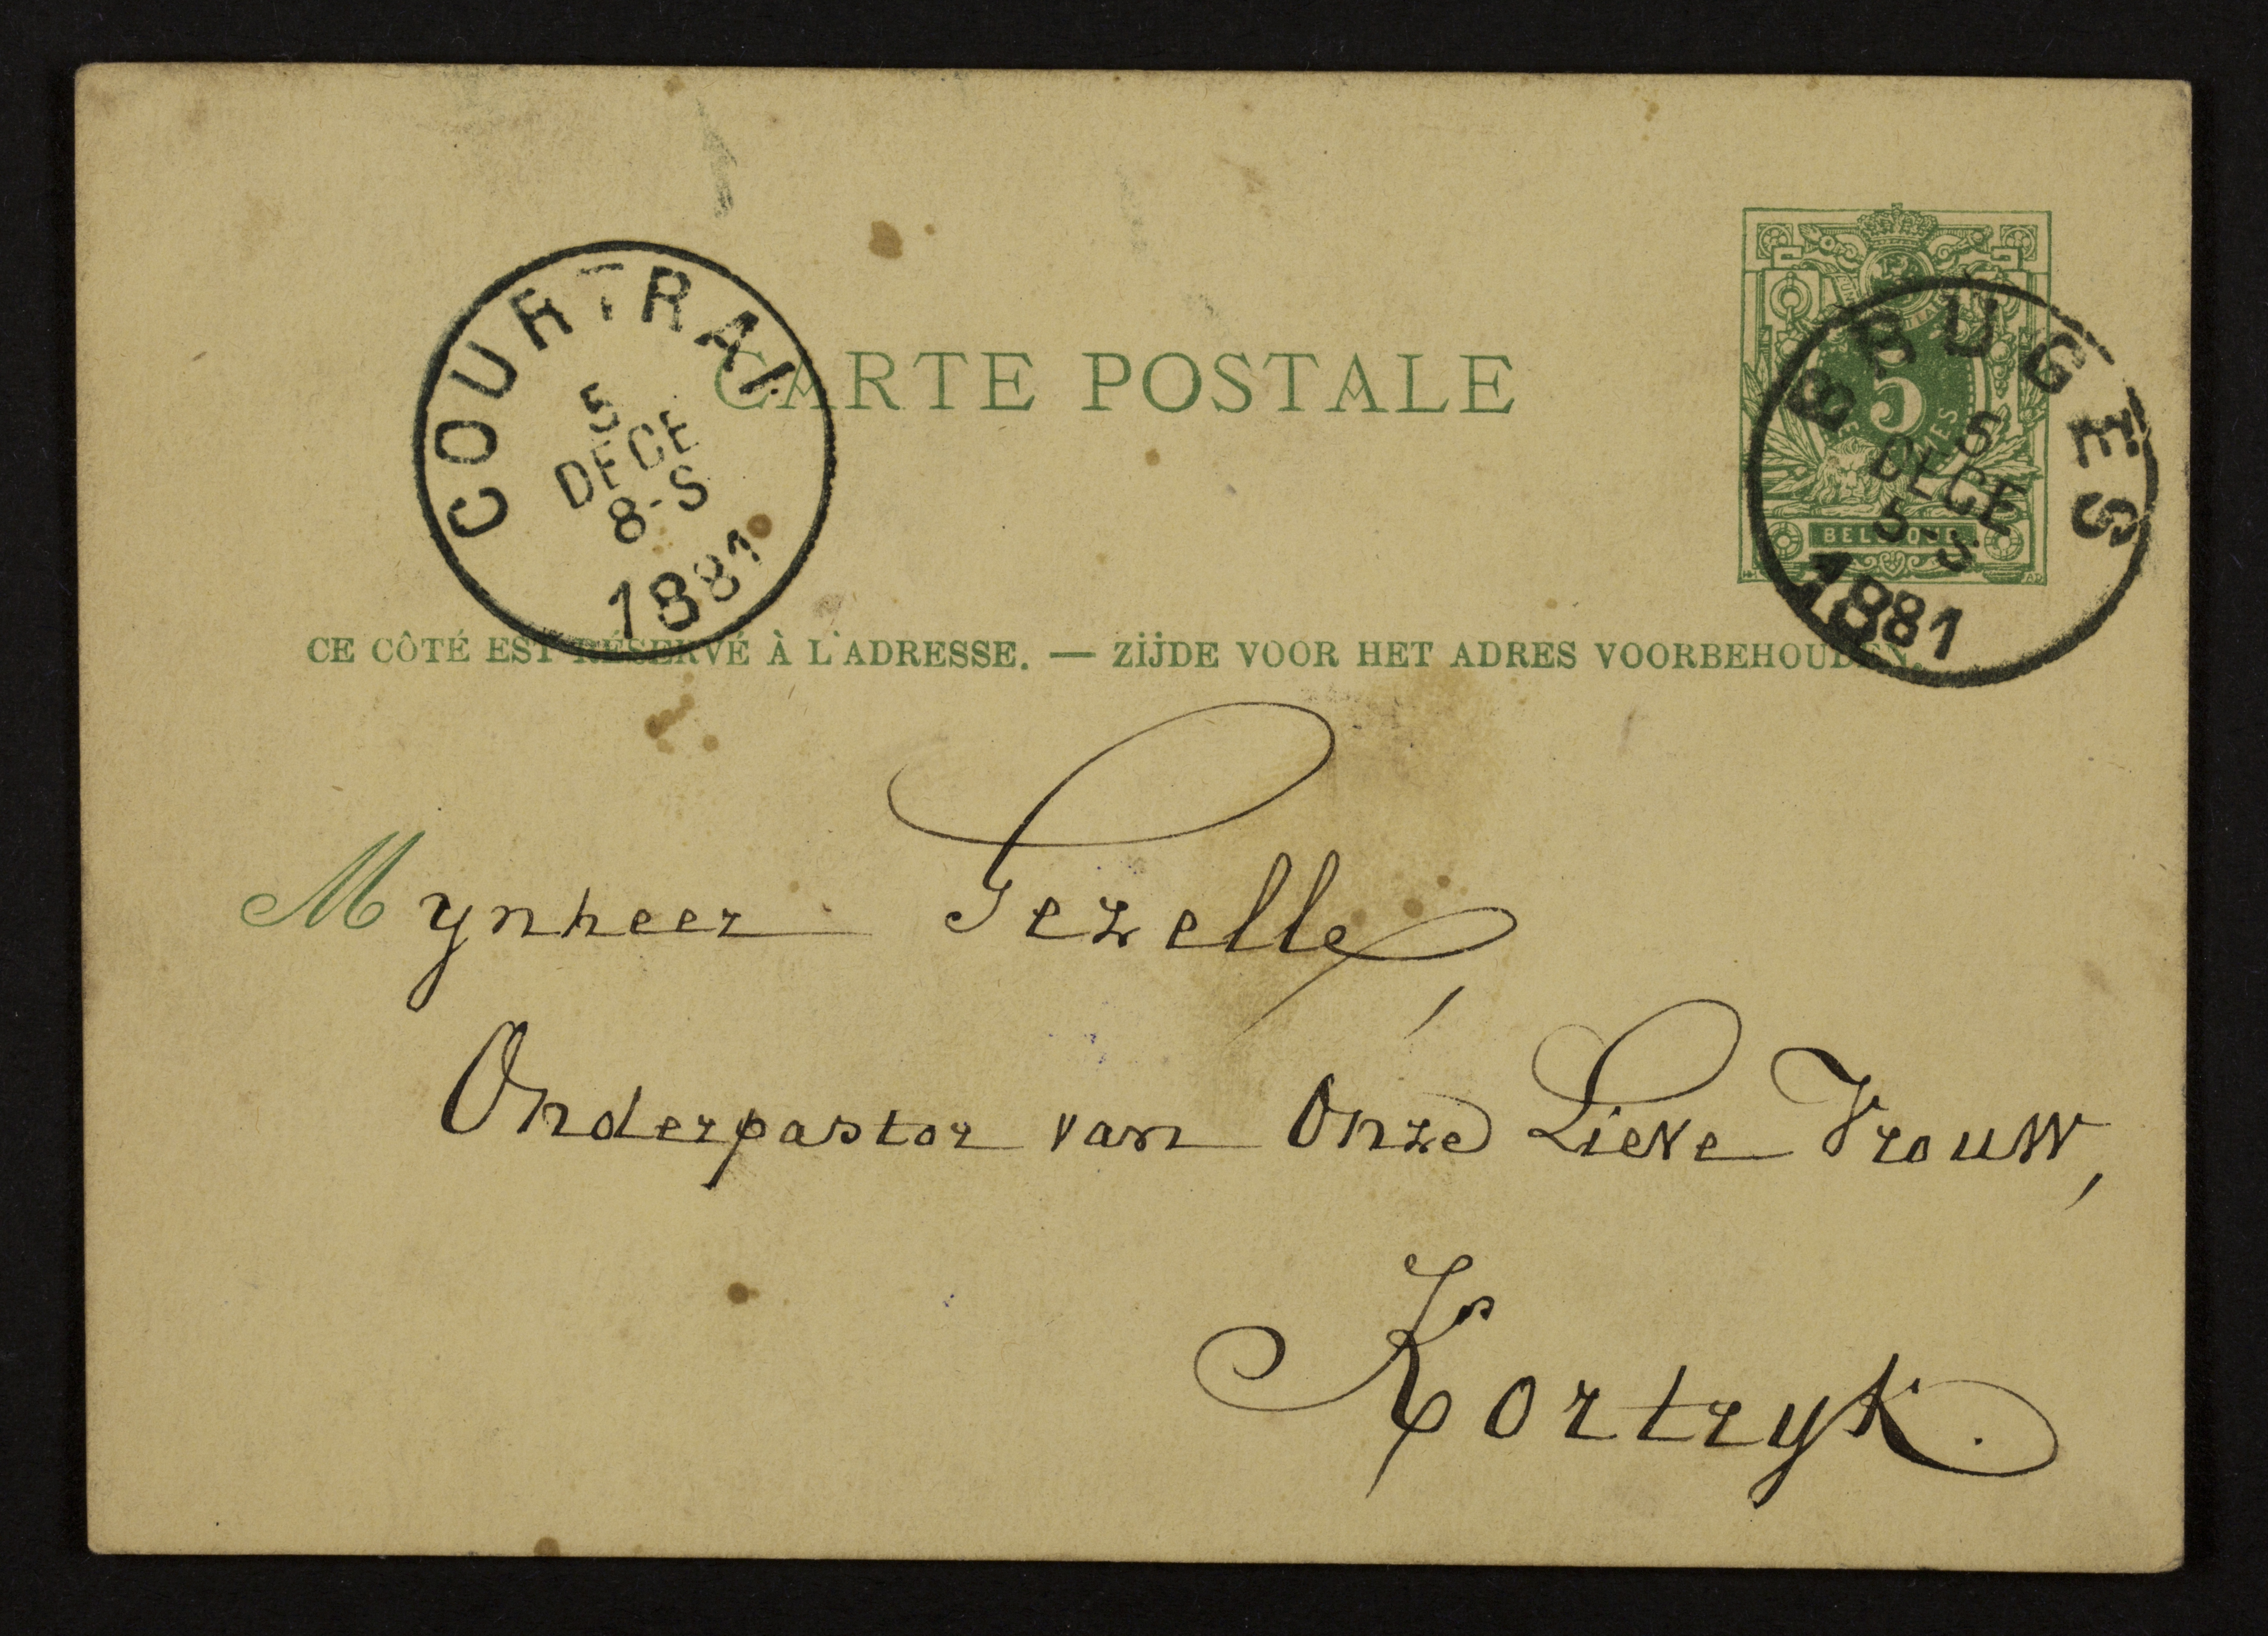 COURTRAI
5
DECE
8-S
1881
CARTE POSTALE
5
BELGIQUE
BRUGES
5
DECE
5-S
1881
CE CÔTÉ EST RÉSERVÉ À L'ADRESSE. — ZIJDE VOOR HET ADRES VOORBEHOUDEN.
Mynheer Gezelle,
Onderpastor van Onze Lieve Vrouw,
Kortryk.